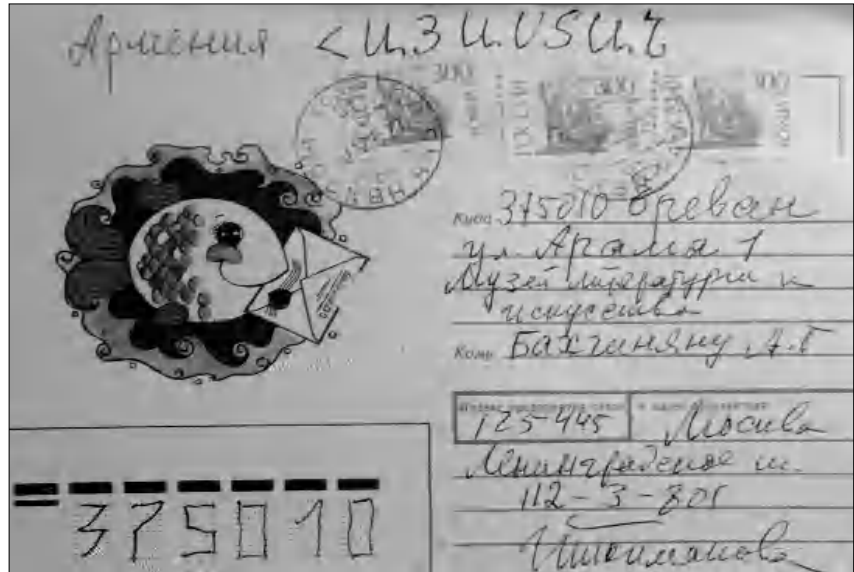 Армения ՀԱՅԱՍՏԱՆ
300 300 300
РОССИЯ
Куда 375010 Ереван
ул. Арама 1
Музей литературы и
искусства
Кому Бахчиняну А.Г
125445 Москва
Ленинградское ш.
112-3-801
375010